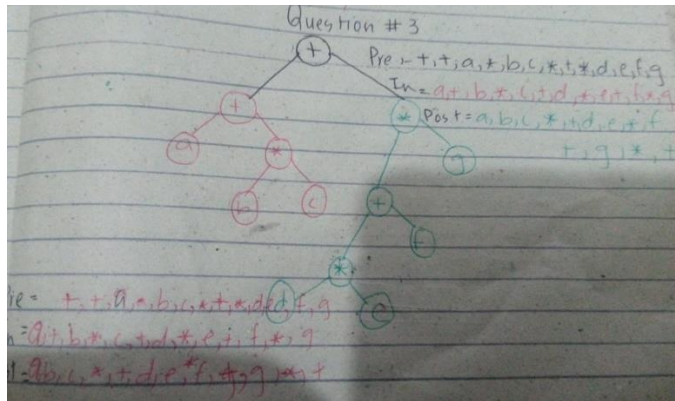 Question # 3
+
Pre :- +, +, a, *, b, c, *, +, *, d, e, f, g
In = a, +, b, *, c, +, d, *, e, +, f, *, g
+
*
Post = a, b, c, *, +, d, e, *, f
+, g, *, +
a
*
g
b
c
+
f
*
= +, +, a, *, b, c, *, +, *, d, e, f, g
d
e
= a, +, b, *, c, +, d, *, e, +, f, *, g
= a, b, c, *, +, d, e, *, f, +, g, *, +